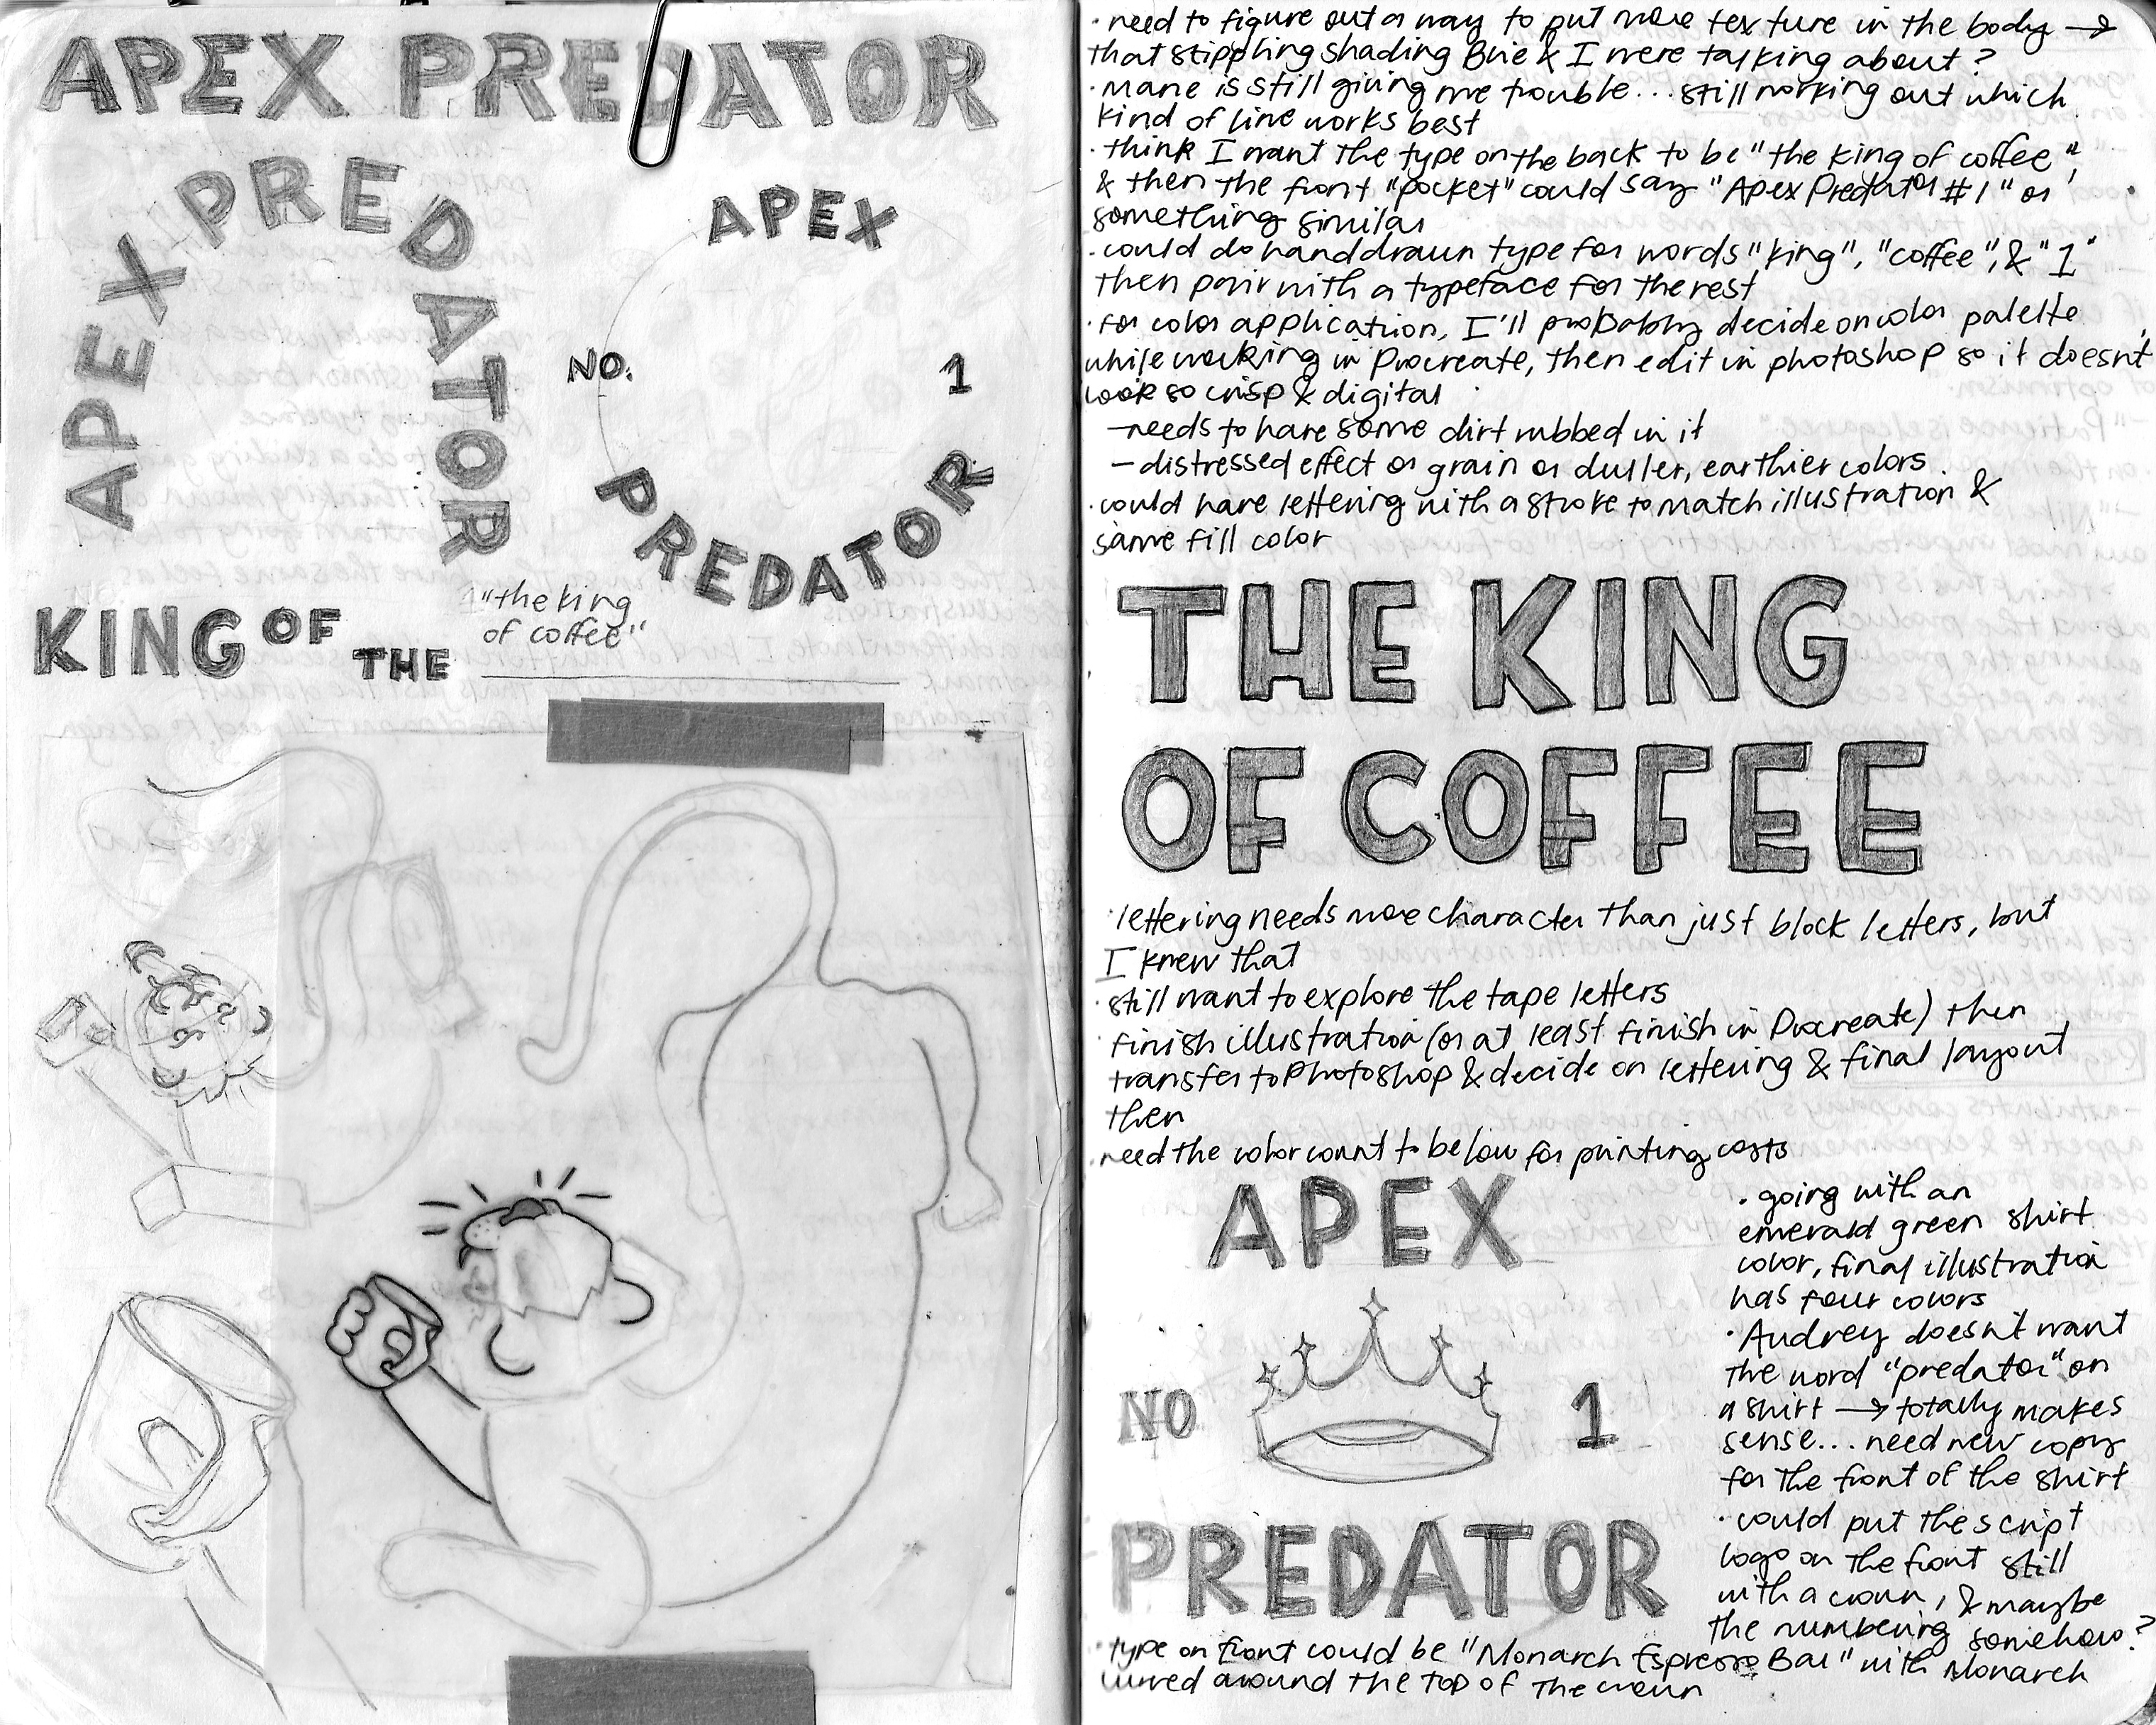 APEX PREDATOR
APEX PREDATOR
APEX
NO. 1
PREDATOR
KING OF THE
"the king
of coffee"
· need to figure out a way to put more texture in the body →
that stippling shading Brie & I were talking about?
· mane is still giving me trouble... still working out which
kind of line works best
· think I want the type on the back to be "the king of coffee",
& then the front "pocket" could say "Apex Predator #1" or
something similar
· could do handdrawn type for words "king", "coffee", & "1"
then pair with a typeface for the rest
· for color application, I'll probably decide on color palette
while working in Procreate, then edit in photoshop so it doesn't
look so crisp & digital
— needs to have some dirt rubbed in it
— distressed effect or grain or duller, earthier colors
· could have lettering with a stroke to match illustration &
same fill color
THE KING
OF COFFEE
· lettering needs more character than just block letters, but
I knew that
· still want to explore the tape letters
· finish illustration (or at least finish in Procreate) then
transfer to Photoshop & decide on lettering & final layout
then
· need the color count to be low for printing costs
APEX
NO 1
PREDATOR
· going with an
emerald green shirt
color, final illustration
has four colors
· Audrey doesn't want
the word "predator" on
a shirt → totally makes
sense... need new copy
for the front of the shirt
· could put the script
logo on the front still
with a crown, & maybe
the numbering somehow?
· type on front could be "Monarch Espresso Bar" with Monarch
curved around the top of the crown